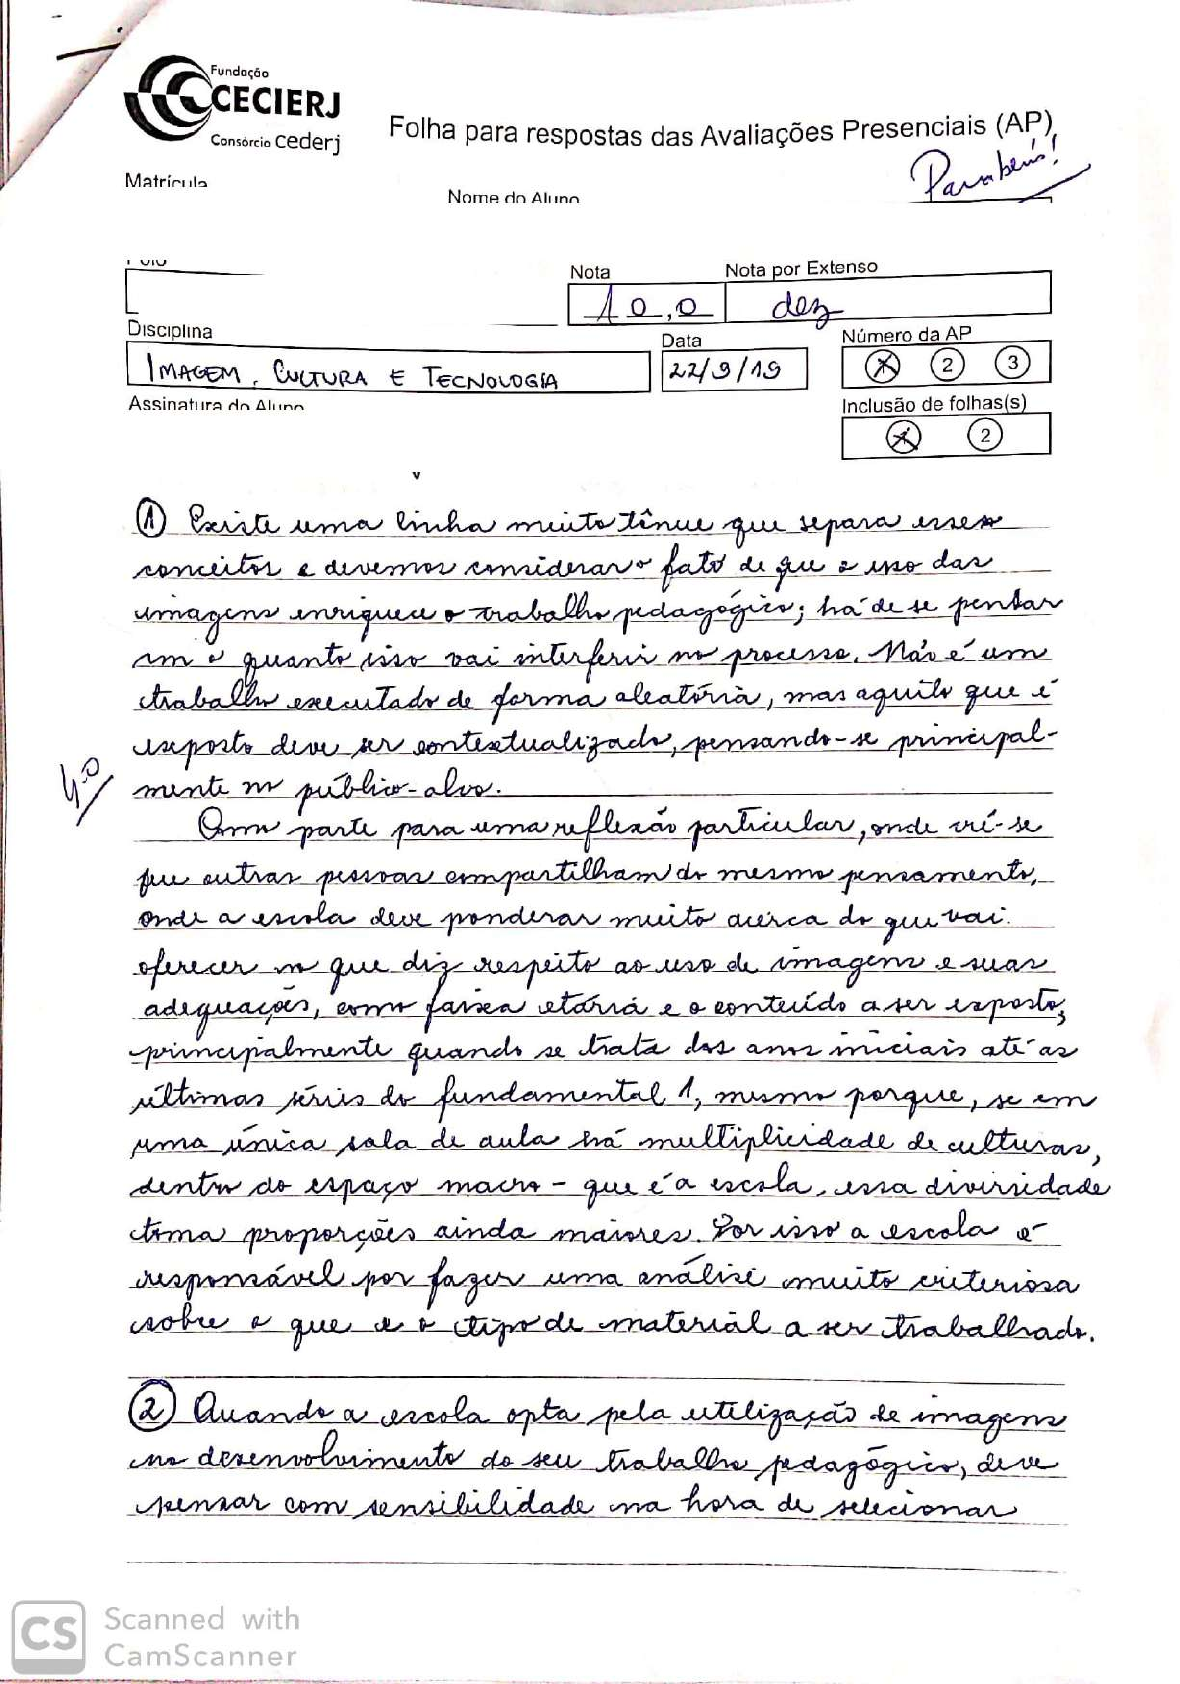 Fundação
CECIERJ
Consórcio Cederj
Folha para respostas das Avaliações Presenciais (AP)
Parabéns!
Matrícula
Nome do Aluno
Polo
Nota
Nota por Extenso
10,0
dez
Disciplina
Data
Número da AP
IMAGEM, CULTURA E TECNOLOGIA
22/9/19
2
3
Assinatura do Aluno
Inclusão de folhas(s)
2
1 Existe uma linha muito tênue que separa esses
conceitos e devemos considerar o fato de que o uso das
imagens enriquece o trabalho pedagógico; há de se pensar
em o quanto isso vai interferir no processo. Não é um
trabalho executado de forma aleatória, mas aquilo que é
exposto deve ser contextualizado, pensando-se principal-
4,0
mente no público-alvo.
parte para uma reflexão particular, onde vê-se
que outras pessoas compartilham do mesmo pensamento,
onde a escola deve ponderar muito acerca do que vai
oferecer no que diz respeito ao uso de imagens e suas
adequações, como faixa etária e o conteúdo a ser exposto,
principalmente quando se trata dos anos iniciais até as
últimas séries do fundamental 1, mesmo porque, se em
uma única sala de aula há multiplicidade de culturas,
dentro do espaço macro - que é a escola, essa diversidade
toma proporções ainda maiores. Por isso a escola é
responsável por fazer uma análise muito criteriosa
sobre o que e o tipo de material a ser trabalhado.
2 Quando a escola opta pela utilização de imagens
no desenvolvimento do seu trabalho pedagógico, deve
pensar com sensibilidade na hora de selecionar
CS
Scanned with
CamScanner